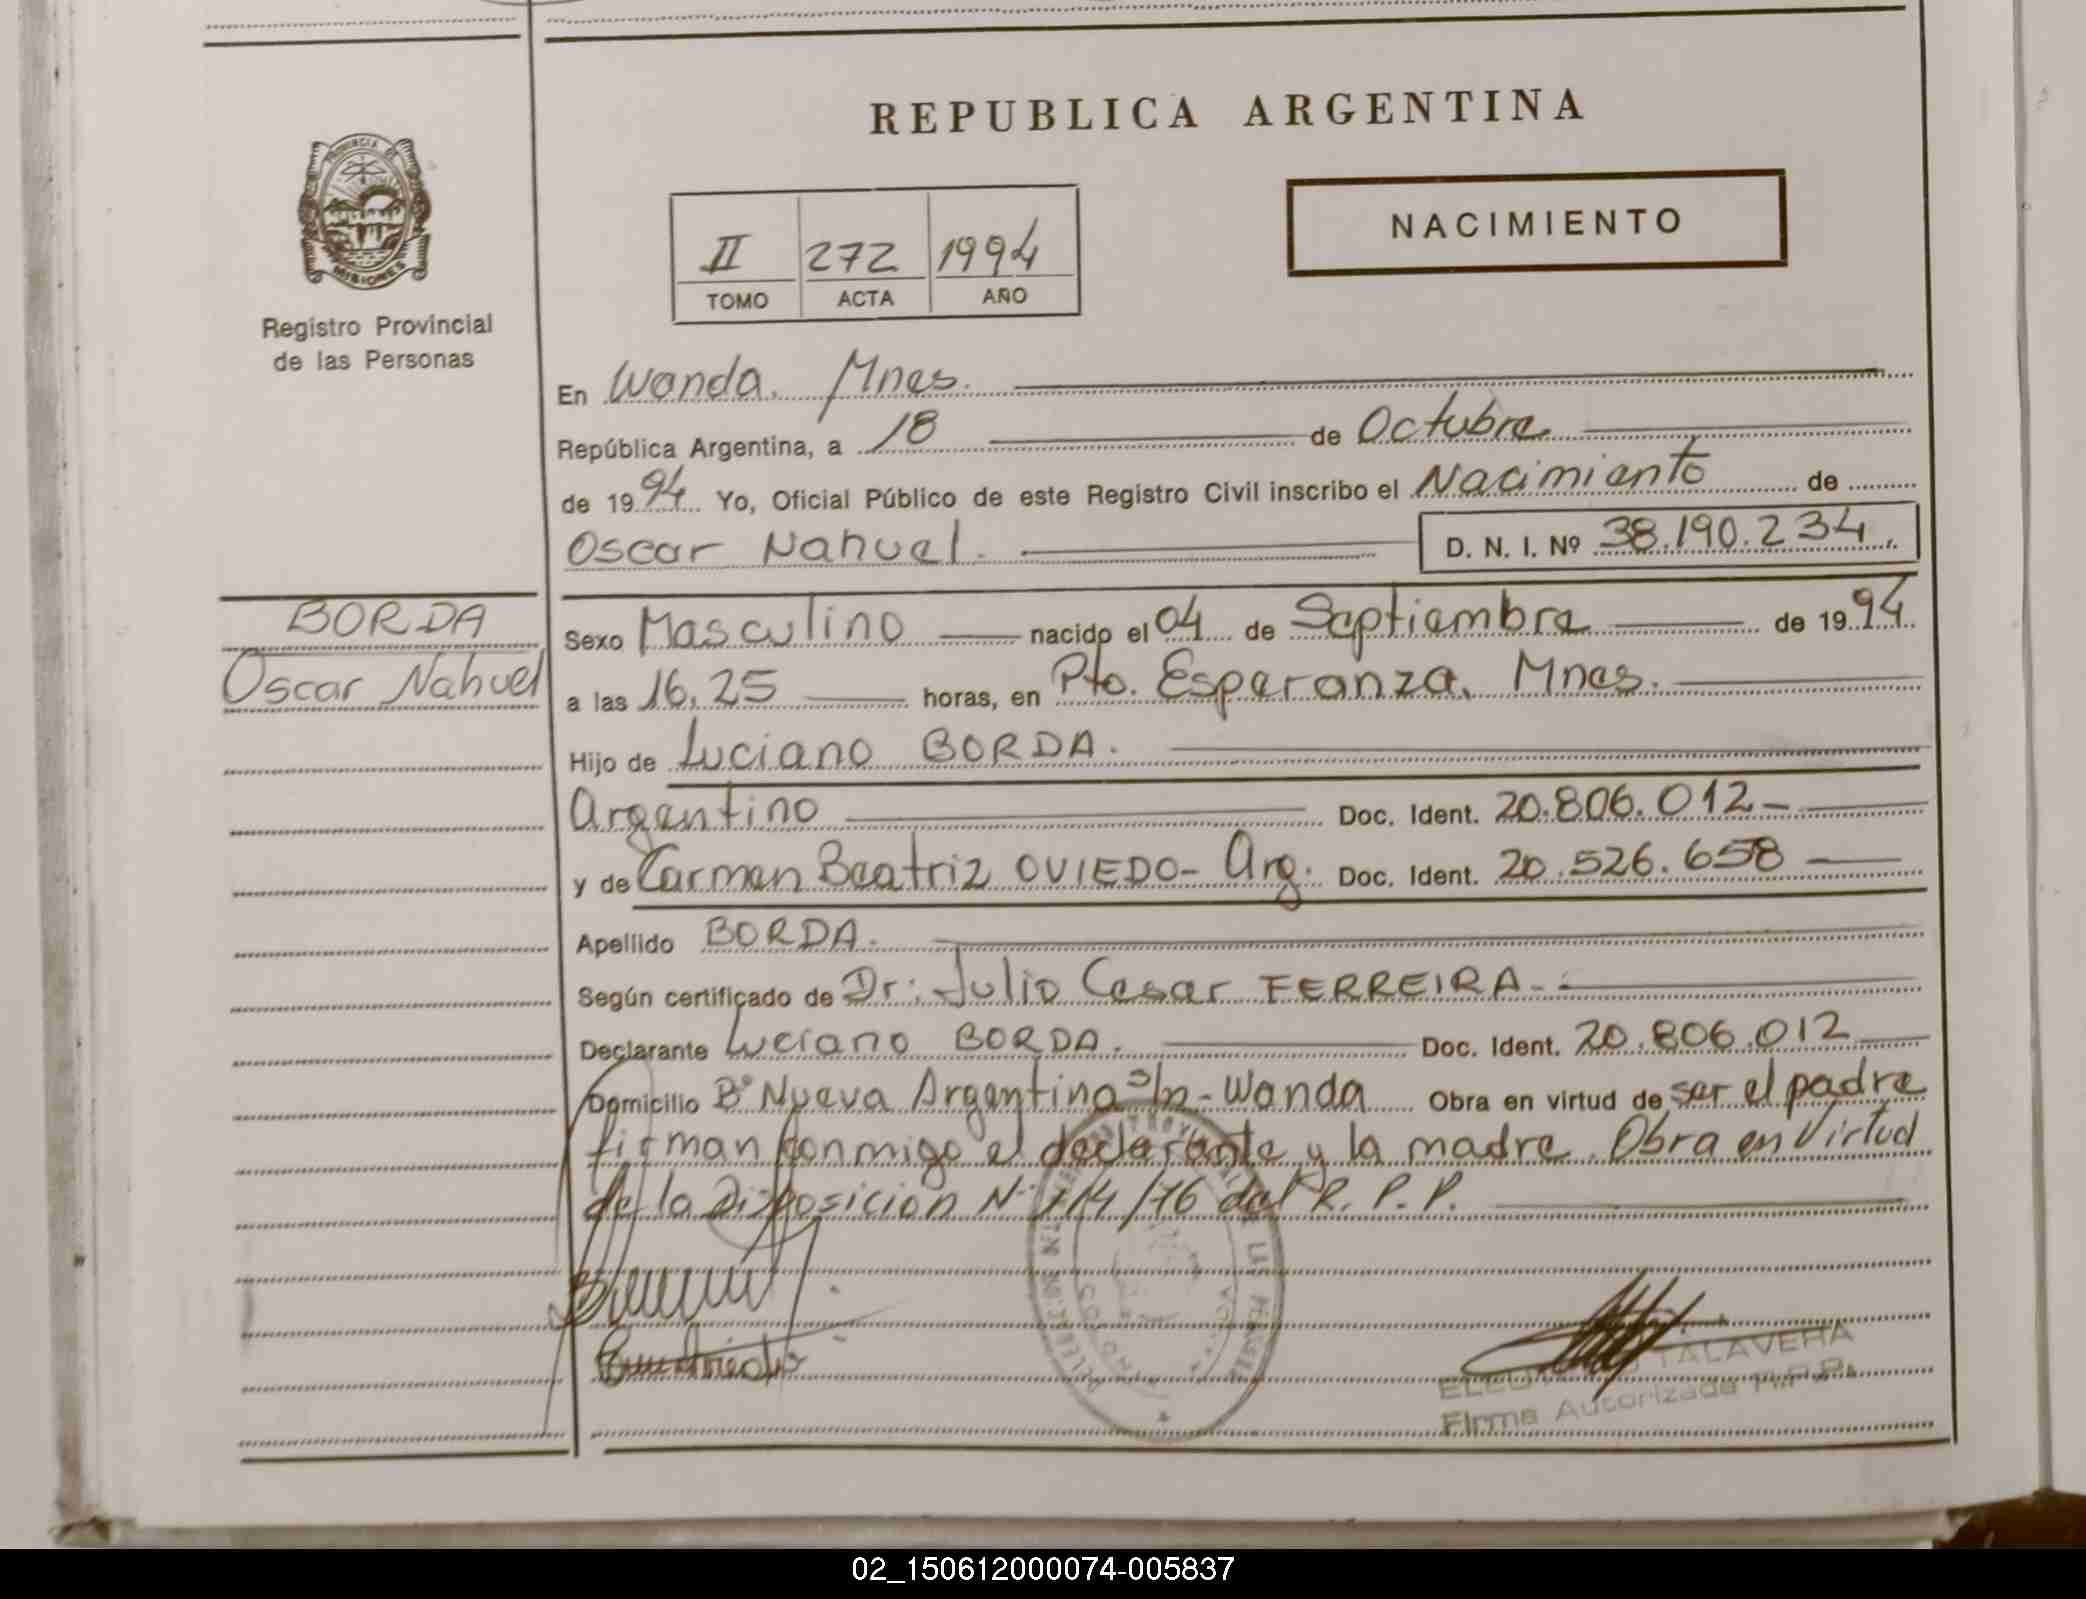 REPUBLICA ARGENTINA
PROVINCIA DE
MISIONES
Registro Provincial
de las Personas
NACIMIENTO
II 272 1994
TOMO ACTA AÑO
En Wanda. Mnes.
República Argentina, a 18 de Octubre
de 1994 Yo, Oficial Público de este Registro Civil inscribo el Nacimiento de
Oscar Nahuel. D. N. I. Nº 38.190.234
BORDA
Oscar Nahuel
Sexo Masculino nacido el 04 de Septiembre de 1994
a las 16,25 horas, en Pto. Esperanza, Mnes.
Hijo de Luciano BORDA.
Argentino Doc. Ident. 20.806.012
y de Carmen Beatriz OVIEDO- Arg. Doc. Ident. 20.526.658
Apellido BORDA.
Según certificado de Dr: Julio Cesar FERREIRA.
Declarante Luciano BORDA. Doc. Ident. 20.806.012
Domicilio Bº Nueva Argentina s/n - Wanda Obra en virtud de ser el padre
firman conmigo el declarante y la madre. Obra en Virtud
de la Disposicion Nº 114/76 del R. P. P.
TALAVERA
Firma Autorizada R.P.P.
02_150612000074-005837